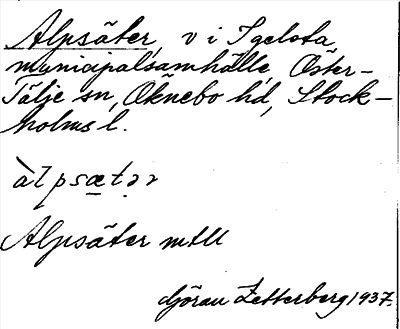 Alpsäter, v i Igelsta
municipalsamhälle, Öster-
Tälje sn, Öknebo hd, Stock-
holms l.
àlpsætər
Alpsäter mtll
Göran Zetterberg 1937.